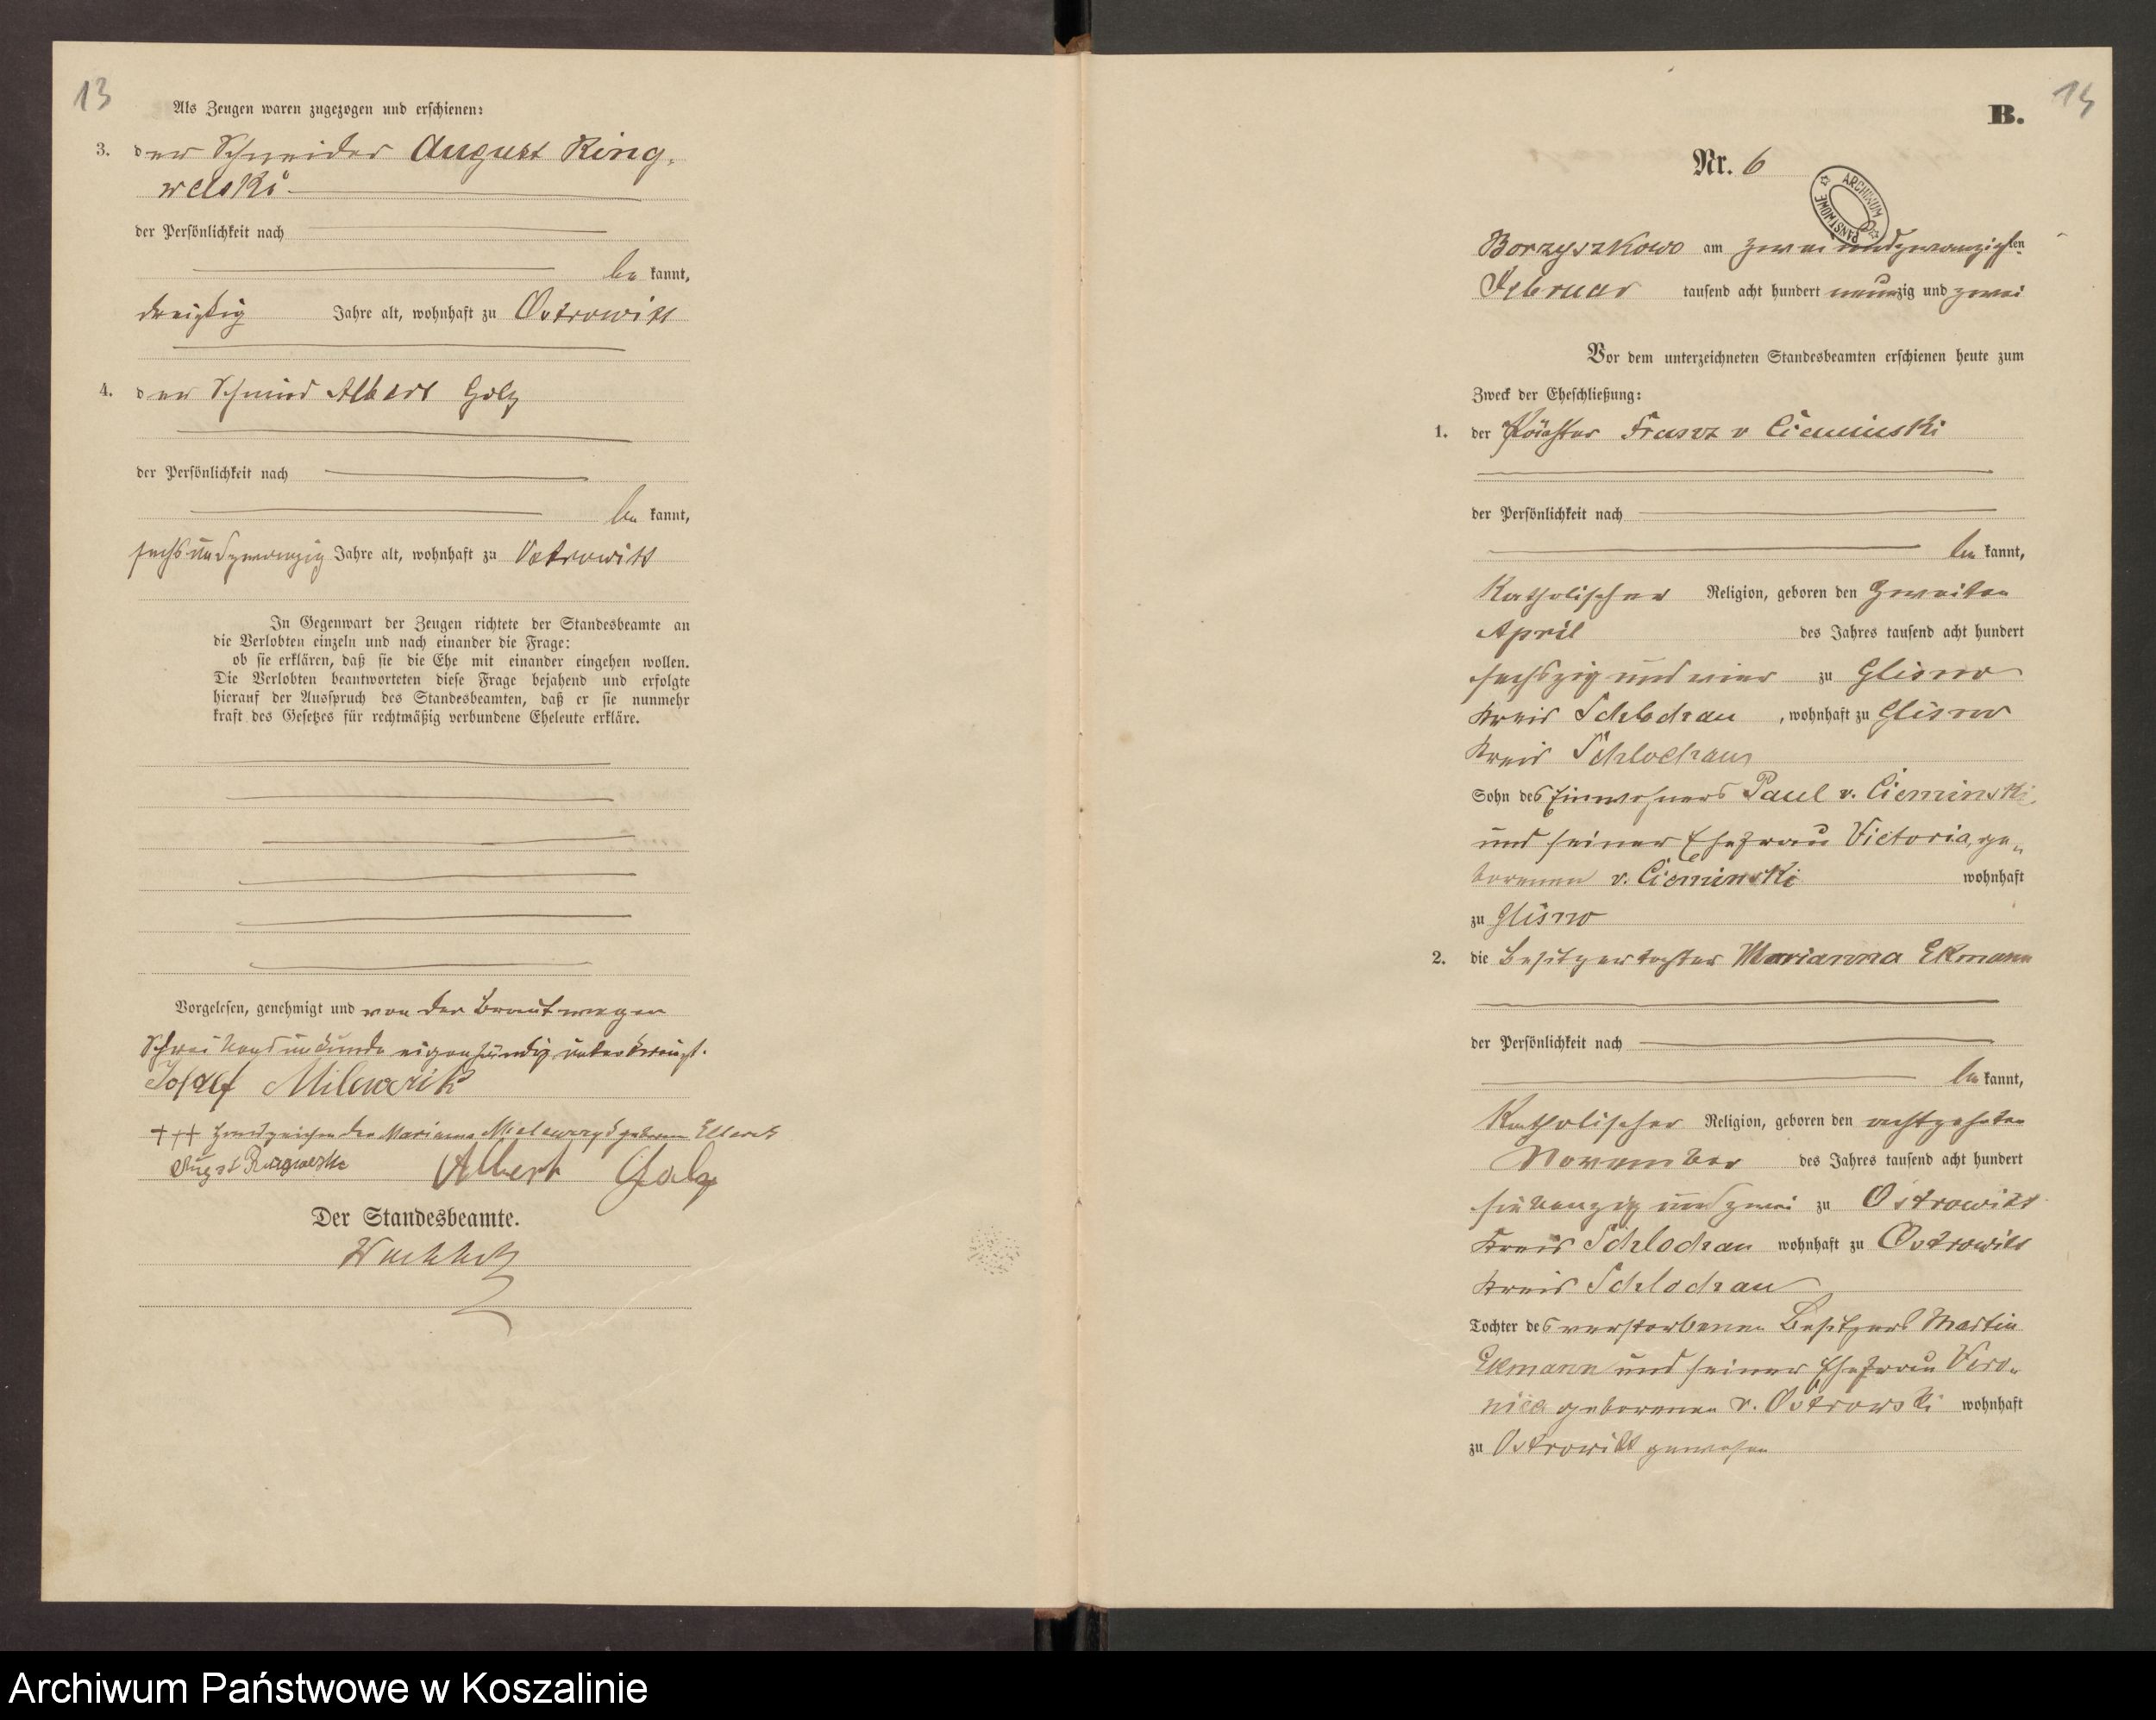 13
Als Zeugen waren zugezogen und erschienen:
3. der Schneider August Ring-
welski
der Persönlichkeit nach
be kannt,
dreißig Jahre alt, wohnhaft zu Ostrowitt
4. der Schmied Albert Golz
der Persönlichkeit nach
be kannt,
sechsundzwanzig Jahre alt, wohnhaft zu Ostrowitt
In Gegenwart der Zeugen richtete der Standesbeamte an
die Verlobten einzeln und nach einander die Frage:
ob sie erklären, daß sie die Ehe mit einander eingehen wollen.
Die Verlobten beantworteten diese Frage bejahend und erfolgte
hierauf der Ausspruch des Standesbeamten, daß er sie nunmehr
kraft des Gesetzes für rechtmäßig verbundene Eheleute erkläre.
Vorgelesen, genehmigt und von der Braut wegen
Schreibensunkunde eigenhändig unterkreuzt.
Josef Milewczik
+++ Handzeichen der Marianna geborene
August Ringwelski Albert Golz
Der Standesbeamte.
14
B.
Nr. 6
ARCHIWUM PAŃSTWOWE
Borzyszkowo am zweiundzwanzigsten
Februar tausend acht hundert neunzig und zwei
Vor dem unterzeichneten Standesbeamten erschienen heute zum
Zweck der Eheschließung:
1. der Franz v Cieminski
der Persönlichkeit nach
be kannt,
Katholischer Religion, geboren den zweiten
April des Jahres tausend acht hundert
sechszig und vier zu Glisno
Kreis Schlochau, wohnhaft zu Glisno
Kreis Schlochau
Sohn des Einwohners Paul v. Cieminski
und seiner Ehefrau Victoria, ge-
borenen v. Cieminski wohnhaft
zu Glisno
2. die Besitzertochter Marianna Ekmann
der Persönlichkeit nach
be kannt,
Katholischer Religion, geboren den achtzehnten
November des Jahres tausend acht hundert
siebenzig und zwei zu Ostrowitt
Kreis Schlochau wohnhaft zu Ostrowitt
Kreis Schlochau
Tochter des verstorbenen Besitzers Martin
Ekmann und seiner Ehefrau Vero-
nica geborenen v. Ostrowski wohnhaft
zu Ostrowitt gewesen
Archiwum Państwowe w Koszalinie